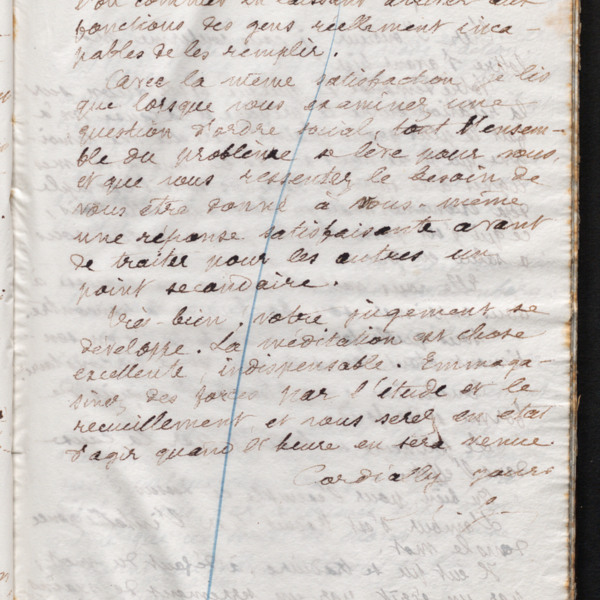 fonctions des gens réellement inca-
pables de les remplir.
Avec la même satisfaction, je lis
que lorsque vous examinez une
question d'ordre social, tout l'ensem-
ble du problème se lève pour vous,
et que vous ressentez le besoin de
vous être donné à vous-même
une réponse satisfaisante avant
de traiter pour les autres un
point secondaire.
Très bien, votre jugement se
développe. La méditation est chose
excellente, indispensable. Emmaga-
sinez des forces par l'étude et le
recueillement et vous serez en état
d'agir quand l'heure en sera venue.
Cordially yours